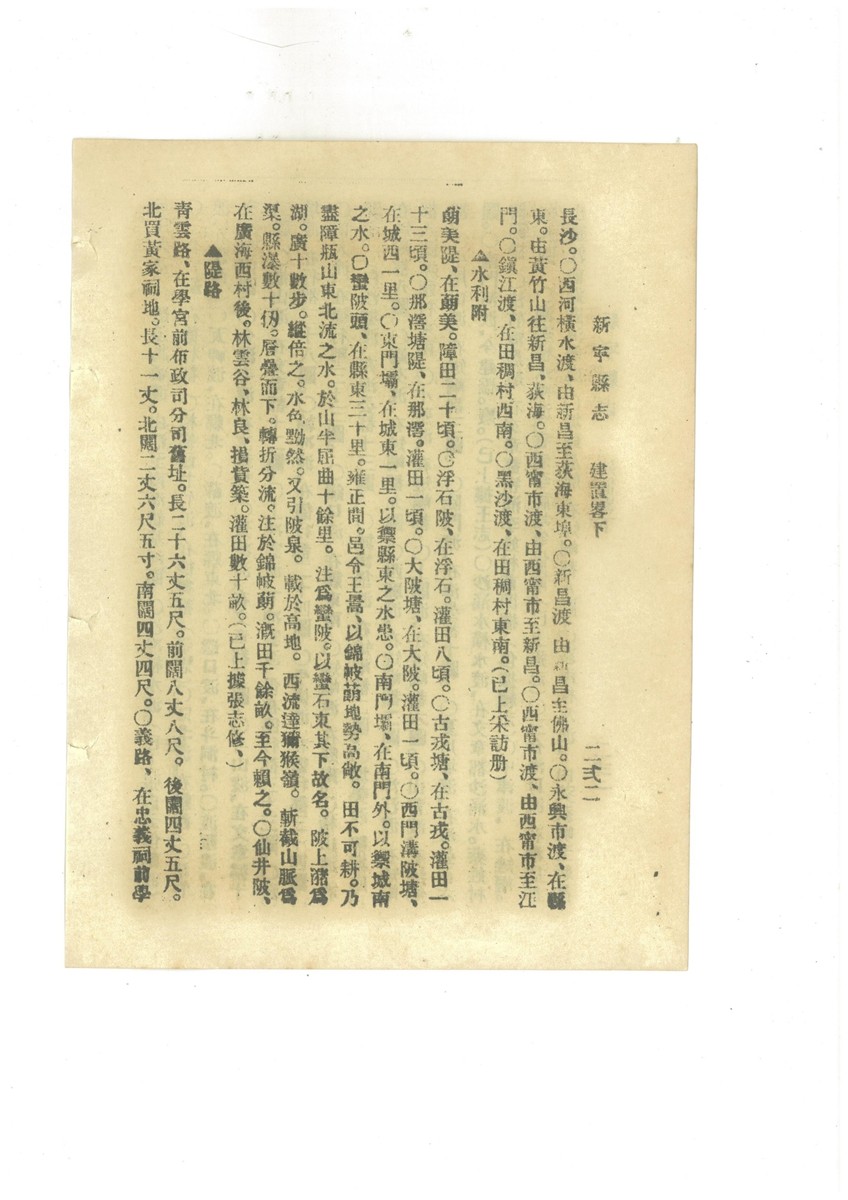 新寧縣志　建置畧下　二弍二
長沙。〇西河橫水渡、由新昌至荻海東埠。〇新昌渡　由新昌至佛山。〇永興市渡、在縣
東。由黃竹山往新昌、荻海。〇西甯市渡、由西甯市至新昌。〇西甯市渡、由西甯市至江
門。〇鎭江渡、在田稠村西南。〇黑沙渡、在田稠村東南。（已上采訪册）
▲水利附
蓢美隄、在蓢美。障田二十頃。〇浮石陂、在浮石。灌田八頃。〇古戎塘、在古戎。灌田一
十三頃。〇那㵧塘隄、在那㵧。灌田一頃。〇大陂塘、在大陂。灌田一頃。〇西門溝陂塘、
在城西一里。〇東門壩、在城東一里。以禦縣東之水患。〇南門壩、在南門外。以禦城南
之水。〇蠻陂頭、在縣東三十里。雍正間。邑令王暠、以錦帔蓢地勢高敞。田不可耕。乃
盡障瓶山東北流之水。於山半屈曲十餘里。注爲蠻陂。以蠻石東其下故名。陂上豬爲
湖。廣十數步。縱倍之。水色黝然。又引陂泉。載於高地。西流達獼猴嶺。斬截山脈爲
渠。縣瀑數十仞。層疊而下。轉折分流。注於錦帔蓢。溉田千餘畝。至今賴之。〇仙井陂、
在廣海西村後。林雲谷、林良、捐貲築。灌田數十畝。（已上據張志修、）
▲隄路
靑雲路、在學宮前布政司分司舊址。長二十六丈五尺。前闊八丈八尺。後闊四丈五尺。
北買黃家祠地。長十一丈。北闊二丈六尺五寸。南闊四丈四尺。〇義路、在忠義祠前學